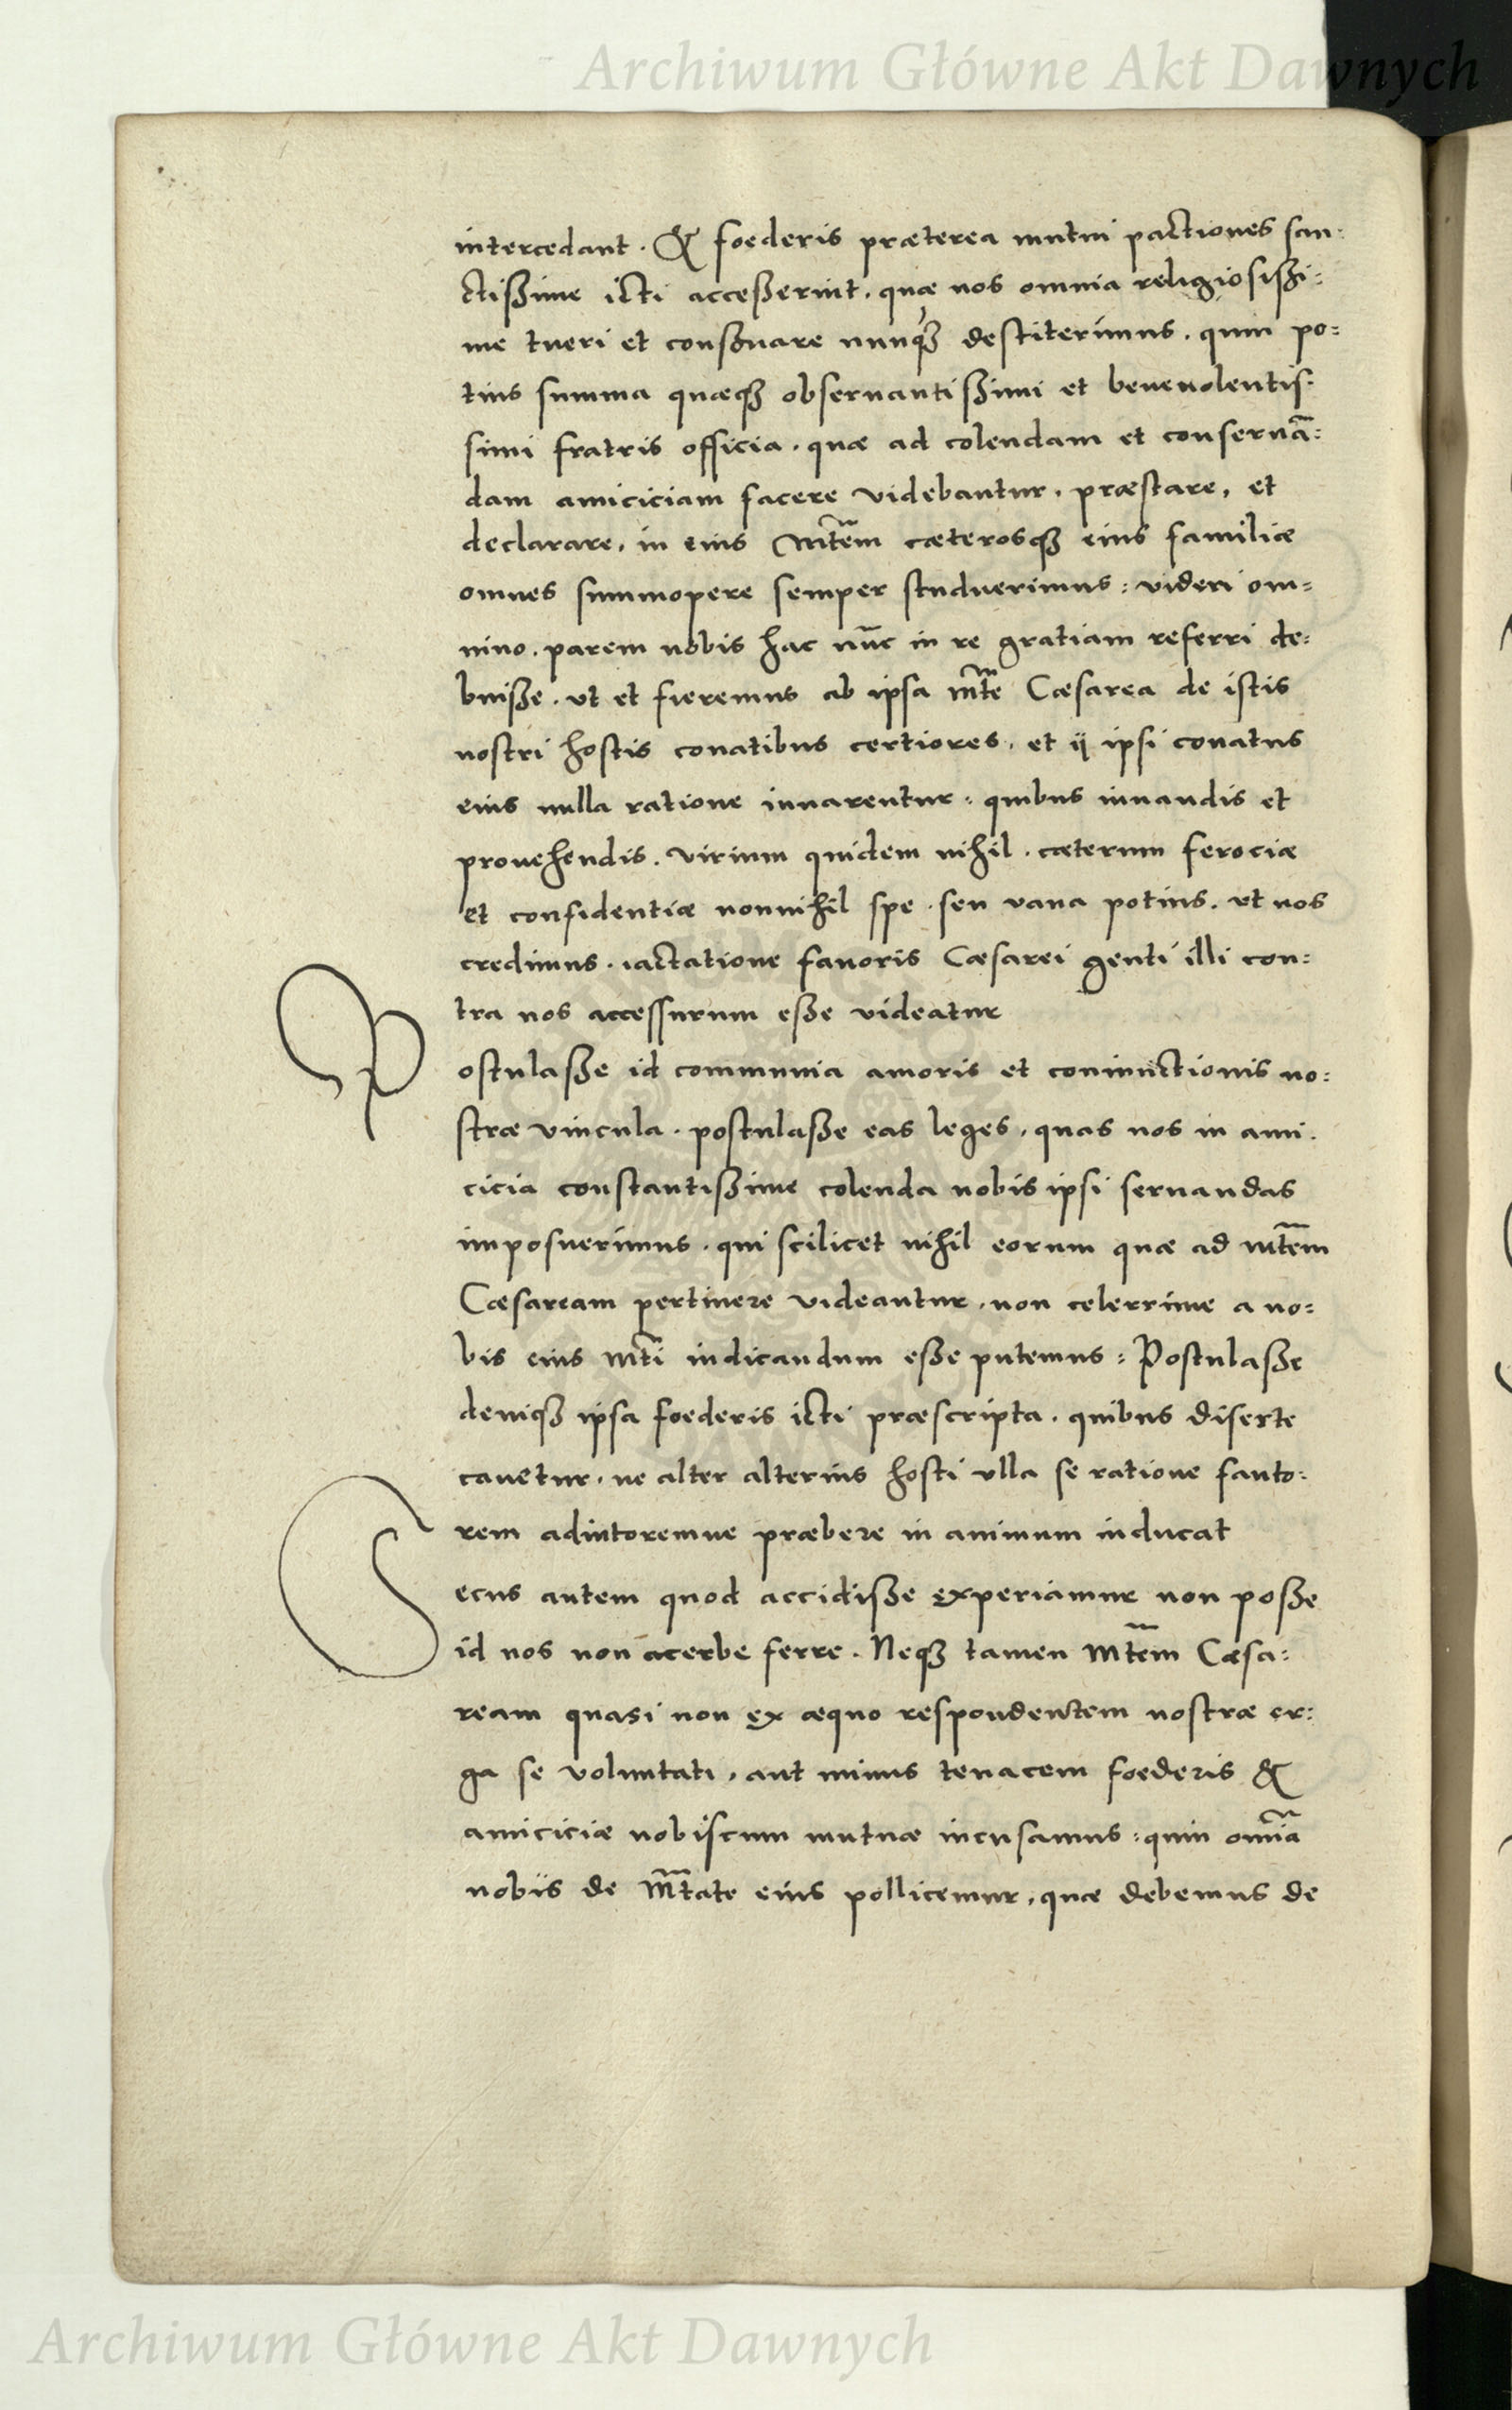 Archiwum Główne Akt Dawnych
intercedant. & foederis præterea mutui pactiones san:
ctißime icti acceßerint. quæ nos omnia religiosißi:
me tueri et conseruare nunq̃ꝫ destiterimus. quin po:
tius summa quæqꝫ obseruantißimi et beneuolentis:
simi fratris officia. quæ ad colendam et conseruã:
dam amiciciam facere videbantur, præstare, et
declarare, in eius Mt̃em cæterosqꝫ eius familiæ
omnes summopere semper studuerimus: videri om:
nino. parem nobis hac nũc in re gratiam referri de:
buiße. vt et fieremus ab ipsa mt̃e Cæsarea de istis
nostri hostis conatibus certiores, et ij ipsi conatus
eius nulla ratione iuuarentur: quibus iuuandis et
prouehendis. virium quidem nihil. cæterum ferociæ
et confidentiæ nonnihil spe. seu vana potius. vt nos
credimus. iactatione fauoris Cæsarei genti illi con:
tra nos accessurum eße videatur
Postulaße id communia amoris et coniunctionis no:
stræ vincula. postulaße eas leges, quas nos in ami:
cicia constantißime colenda nobis ipsi seruandas
imposuerimus. qui scilicet nihil eorum quæ ad mt̃em
Cæsaream pertinere videantur, non celerrime a no:
bis eius mt̃i indicandum eße putemus: Postulaße
deniqꝫ ipsa foederis icti præscripta. quibus diserte
cauetur, ne alter alterius hosti vlla se ratione fauto:
rem adiutoremue præbere in animum inducat
Secus autem quod accidiße experiamur non poße
id nos non acerbe ferre. Neqꝫ tamen Mt̃em Cæsa:
ream quasi non ex æquo respondentem nostræ er:
ga se voluntati, aut minus tenacem foederis &
amiciciæ nobiscum mutuæ incusamus: quin om̃ia
nobis de Mt̃tate eius pollicemur, quæ debemus de
Archiwum Główne Akt Dawnych